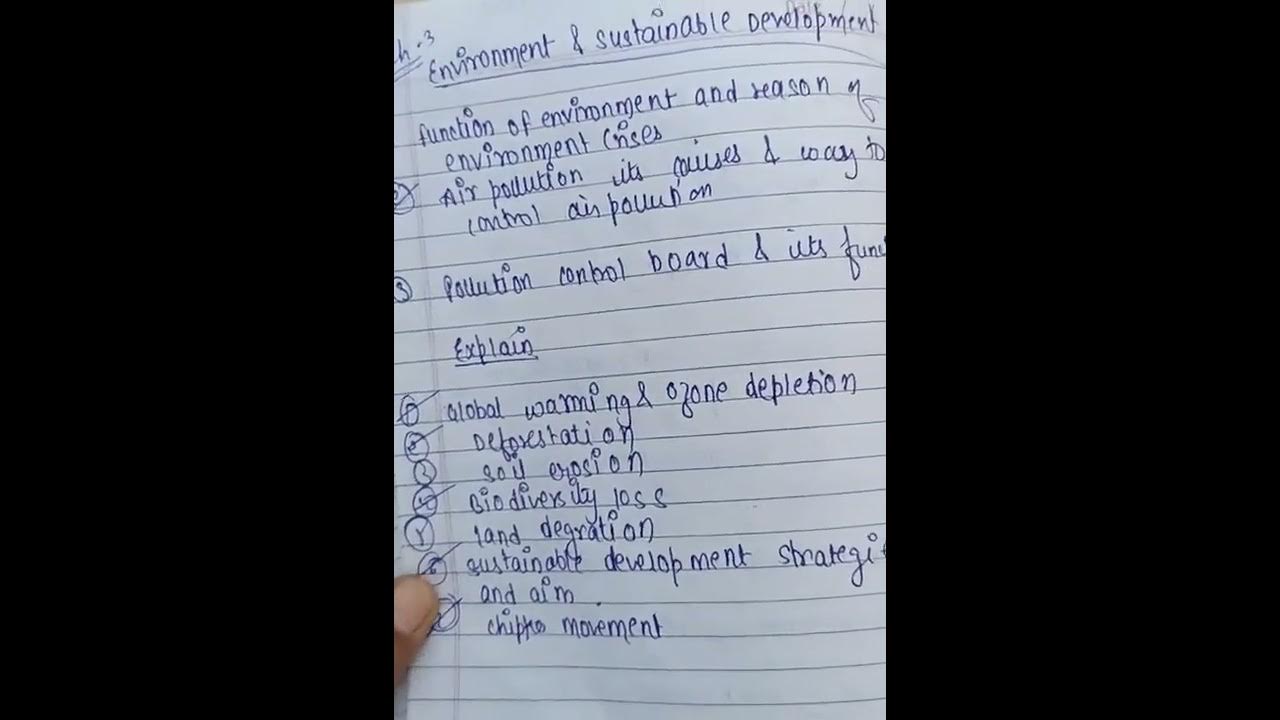 Ch.3
Environment & sustainable Development
function of environment and reason of
environment Crises
2) Air pollution its causes & way to
control air pollution
3) Pollution control board & its func
Explain
1) Global warming & Ozone depletion
2) Deforestation
3) soil erosion
4) Biodiversity loss
5) land degration
6) sustainable development strategi
and aim.
7) chipko movement